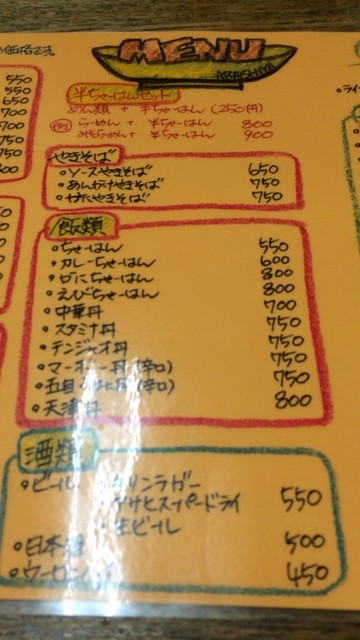 価格です。
550
550
650
700
700
750
750
800
MENU
ARASHIYA
半ちゃーはんセット
めん類 + 半ちゃーはん (250円)
例 らーめん + 半ちゃーはん 800
みそらーめん + 半ちゃーはん 900
やきそば
・ソースやきそば 650
・あんかけやきそば 750
・かたやきそば 750
飯類
・ちゃーはん 550
・カレーちゃーはん 600
・かにちゃーはん 800
・えびちゃーはん 800
・中華丼 700
・スタミナ丼 750
・テンジャオ丼 750
・マーボー丼(辛口) 750
・五目 丼(辛口) 750
・天津丼 800
酒類
・ビール キリンラガー
アサヒスーパードライ 550
生ビール
・日本酒 500
・ウーロンハイ 450
・ライ